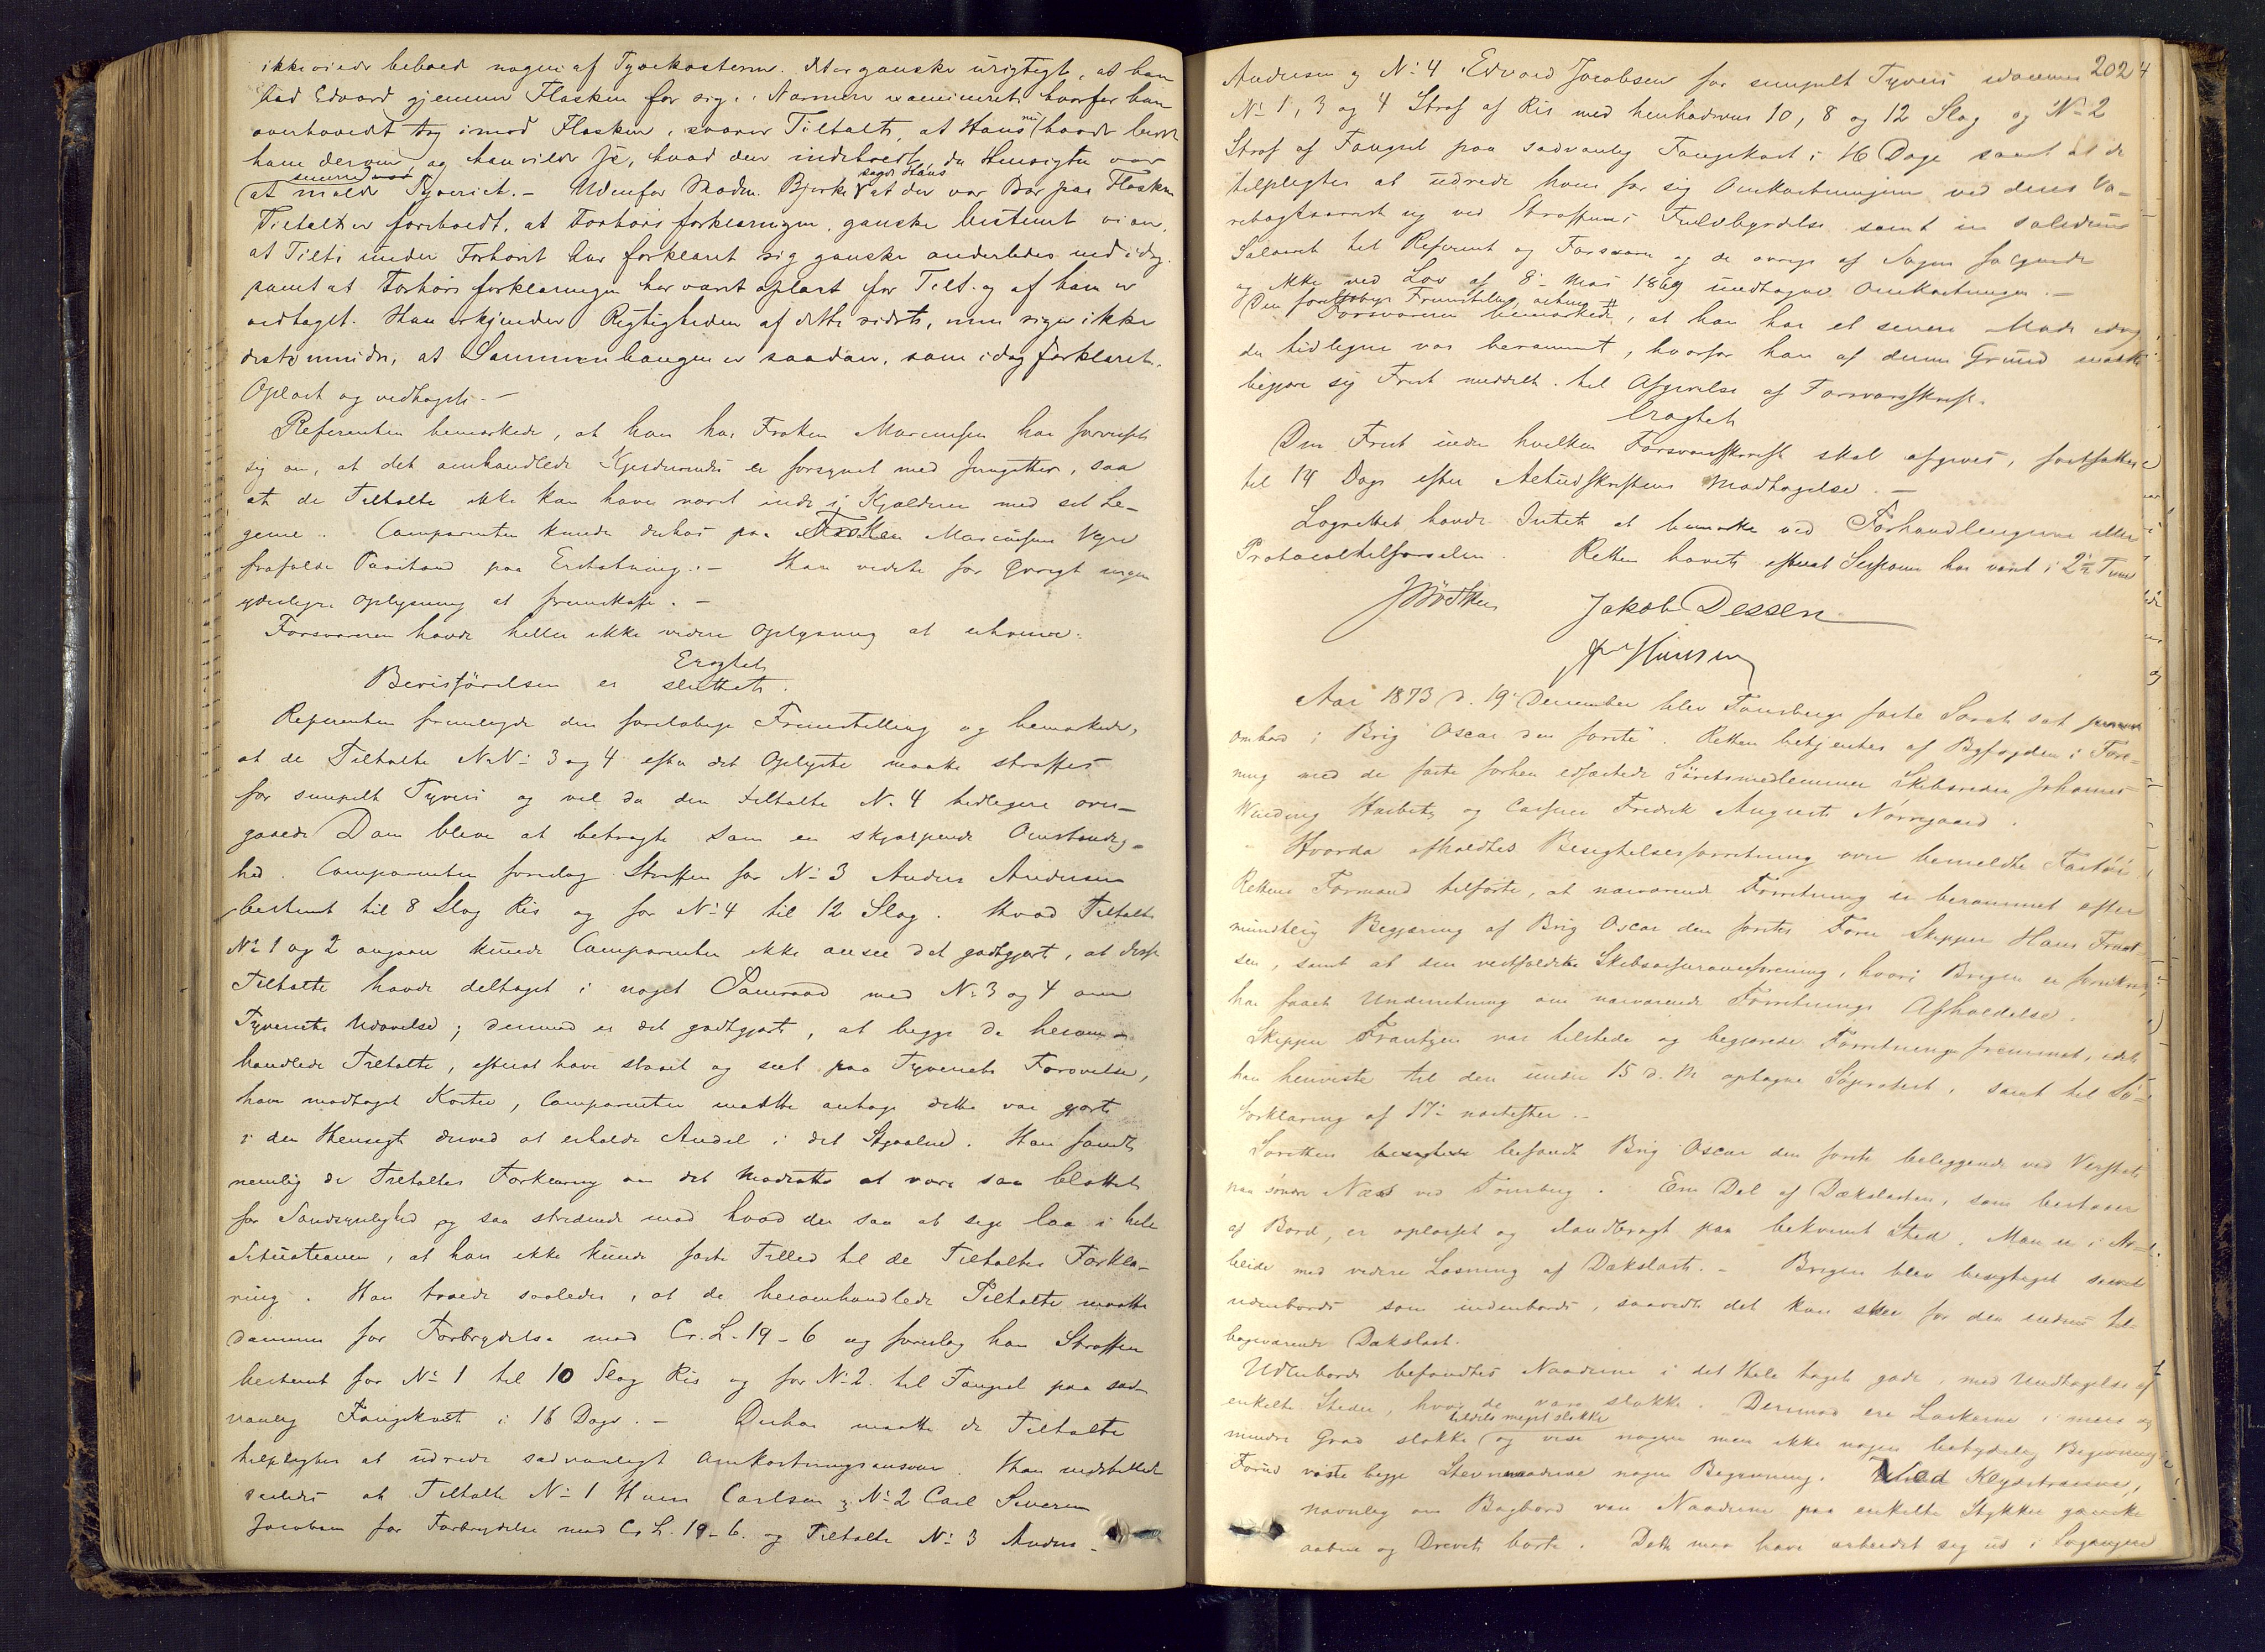 ikke videre beholdt nogen af Tyvekosterne. Det er ganske urigtigt, at han
bad Edvard gjemme Flasken for sig. Nærmere examineret hvorfor han
overhovedt tog imod Flasken, svarer Tiltalte, at Hans nu havde bedet
ham derom og han vilde se, hvad den indeholdt, da Hensigten var
senere
at melde Tyveriet. – Udenfor Madm. Bjerke sagde Hans at der var Bær paa Flasken
Tiltalte er foreholdt, at Forhørsforklaringen ganske bestemt viser,
at Tilt. under Forhøret har forklaret sig ganske anderledes end idag
samt at Forhørsforklaringen har været oplæst for Tilt. og af ham er
vedtaget. Han erkjender Rigtigheden af dette sidste, men siger ikke
destomindre, at Sammenhængen er saadan, som idag forklaret.
Oplæst og vedtaget. –
Referenten bemærkede, at han hos Frøken Marcussen har forvisset
sig om, at det omhandlede Kjeldervindu er forsynet med Jerngitter, saa
at de Tiltalte ikke kan have været inde i Kjælderen med sit Le-
geme. Comparenten kunde derhos paa Frøken Marcussens Vegne
frafalde Paastand paa Erstatning. – Han vidste for Øvrigt ingen
yderligere Oplysning at fremskaffe. –
Forsvareren havde heller ikke videre Oplysning at erhverve.
Eragtet
Bevisførelsen er sluttet.
Referenten fremlagde den foreløbige Fremstilling og bemærkede,
at de Tiltalte No. 3 og 4 efter det Oplyste maatte straffes
for simpelt Tyveri og vil da den tiltalte No. 4 tidligere over-
gaaede Dom blive at betragte som en skjærpende Omstændig-
hed. Comparenten foreslog Straffen for No. 3 Anders Andersen
bestemt til 8 Slag Ris og for No. 4 til 12 Slag. Hvad Tiltalte
No. 1 og 2 angaar kunde Comparenten ikke ansee det godtgjort, at disse
Tiltalte havde deltaget i noget Samraad med No. 3 og 4 om
Tyveriets Udøvelse; derimod er det godtgjort, at begge de heromtalte
handlede Tiltalte, efterat have staaet og seet paa Tyveriets Forøvelse,
have modtaget Koster, Comparenten maatte antage dette var gjort
i den Hensigt derved at erholde Andel i det Stjaalne. Han fandt
nemlig de Tiltaltes Forklaring om det Modsatte at være saa blottet
for Sandsynlighed og saa stridende mod hvad der saa at sige laa i hele
Situationen, at han ikke kunde fæste Tillid til de Tiltaltes Forkla-
ring. Han troede saaledes, at de heromhandlede Tiltalte maatte
dømmes for Forbrydelse mod Cr. L. 19–6 og foreslog han Straffen
bestemt for No. 1 til 10 Slag Ris og for No. 2 til Fængsel paa sæd-
vanlig Fangekost i 16 Dage. – Derhos maatte de Tiltalte
tilpligtes at udrede sædvanligt Omkostningsansvar. Han indstillede
saaledes at Tiltalte No. 1 Hans Carlsen og No. 2 Carl Severin
Jacobsen for Forbrydelse mod Cr. L. 19–6. og Tiltalte No. 3 Anders
202
Andersen og No. 4 Edvard Jacobsen for simpelt Tyveri idømmes
No. 1, 3 og 4 Straf af Ris med henholdsvis 10, 8 og 12 Slag og No. 2
Straf af Fængsel paa sædvanlig Fangekost i 16 Dage samt at de
tilpligtes at udrede hver for sig Omkostningerne ved deres Va-
retægtsarrest og ved Straffenes Fuldbyrdelse samt in solidum
Salærer til Referent og Forsvarer og de øvrige af Sagen følgende
og ikke ved Lov af 8 Mai 1869 undtagne Omkostninger. –
Den foreløbige Fremstilling
Forsvareren bemærkede, at han har et senere Møde idag
der tidligere var berammet, hvorfor han af denne Grund maatte
begjære sig Frist meddelt til Afgivelse af Forsvarsskrift.
Eragtet
Den Frist inden hvilken Forsvarsskrift skal afgives, fastsættes
til 14 Dage efter Actudskriftens Modtagelse. –
Lagrettet havde Intet at bemærke ved Forhandlingerne eller
Protocoltilførselen. Retten hævet efterat Sessionen har varet i 2½ Time
J Bødtker Jakob Dessen
Hansen
Aar 1873 d. 19 December blev Tønsbergs faste Søret sat
ombord i Brig Oscar den første. Retten betjentes af Byfogden i For-
ning med de faste forhen edfæstede Søretsmedlemmer Skibsreder Johannes
Winding Harbitz og Casper Fredrik August Nørregaard.
Hvorda afholdtes Besigtelsesforretning over bemeldte Fartøi
Rettens Formand tilførte, at nærværende Forretning er berammet efter
mundtlig Begjæring af Brig Oscar den førstes Fører Skipper Hans Frant-
sen, samt at den vestfoldske Skibsassuranceforening, hvori Briggen er forsikret,
har faaet Underretning om nærværende Forretnings Afholdelse.
Skipper Frantzen var tilstede og begjærede Forretningen fremmet, idet
han henviste til den under 15 d. M optagne Søprotest, samt til Sø-
forklaring af 17 næstefter. –
Søretten befandt Brig Oscar den første beliggende ved Verftet
paa søndre Næs ved Tønsberg. En Del af Dækslasten, som bestaar
af Bord, er oplosset og ilandbragt paa bekvemt Sted. Man er i Ar-
beide med videre Losning af Dækslast. – Briggen blev besigtiget saavel
udenbords som indenbords, saavidt det kan skee for den endnu til-
bageværende Dækslast.
Udenbords befandtes Naaderne i det Hele taget gode, med Undtagelse af
enkelte Steder, hvor de vare slakke. Derimod ere Laskerne i mere og
tildels meget slakke
mindre Grad slakke og vise nogen men ikke nogen betydelig Begivning
Forud viste begge Stevnnaaderne nogen Begivning. Ved Klydstræerne,
navnlig om Bagbord var Naaderne paa enkelte Stykker ganske
aabne og Drevet borte. Dette maa have arbeidet sig ud i Søgangen